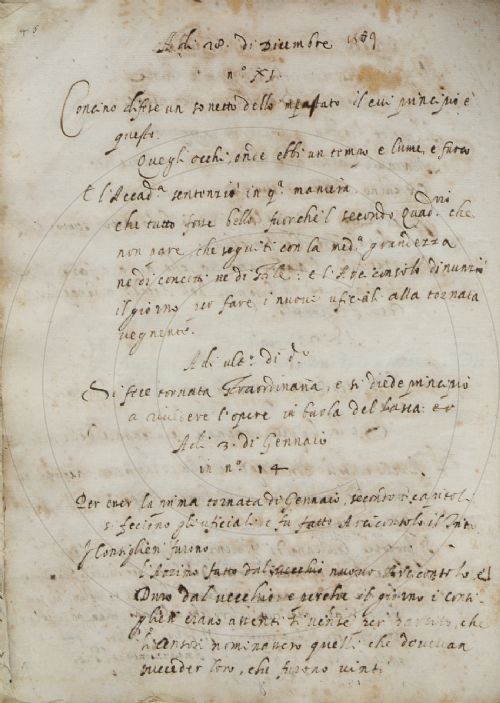 Adi 28. di Dicembre 1589
n.º XI.
Concino difese un sonetto dello 'npastato il cui principio è
questo.
Quegli occhi, onde ebbi un tempo e lume, e fuoco
E l'Accad.ª sentenziò in q.ª maniera
che tutto fosse bello, fuorche'l secondo Quad.rio che
non pare che seguiti con la med.ª grandezza
ne di concetti ne di stile: e l'Arciconsolo dinunziò
il giorno per fare i nuovi uficiali alla tornata
vegnente.
Adi ult.º di d.º
Si fece tornata straordinaria, e si diede principio
a rivedere l'opere in burla del Lasca
Adi 3. di Gennaio
in n.º 14
Per esser la prima tornata di Gennaio, secondo i capitoli
si feciono gli uficiali e fu fatto Arciconsolo il
I Consiglieri furono
fatto dal vecchio nuovo Arciconsolo e'l
Duro dal vecchio: e perche il giorno i consi
glieri erano assenti si vense per partito, che
i censori nominassero quelli che dovevan
succeder loro, che furono vinti